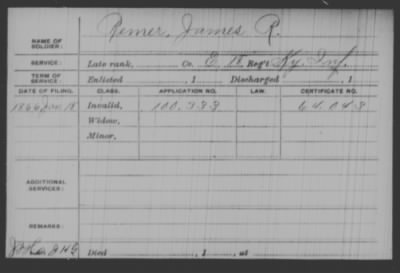 NAME OF SOLDIER: Remer, James R.
SERVICE: Late rank, Co. E, Reg't Ky. Inf.
TERM OF SERVICE: Enlisted , 1 , Discharged , 1
DATE OF FILING. CLASS. APPLICATION NO. LAW. CERTIFICATE NO.
1866 Jan 18 Invalid, 100,333 64,043
Widow,
Minor,
ADDITIONAL SERVICES:
REMARKS:
Died , 1 , at